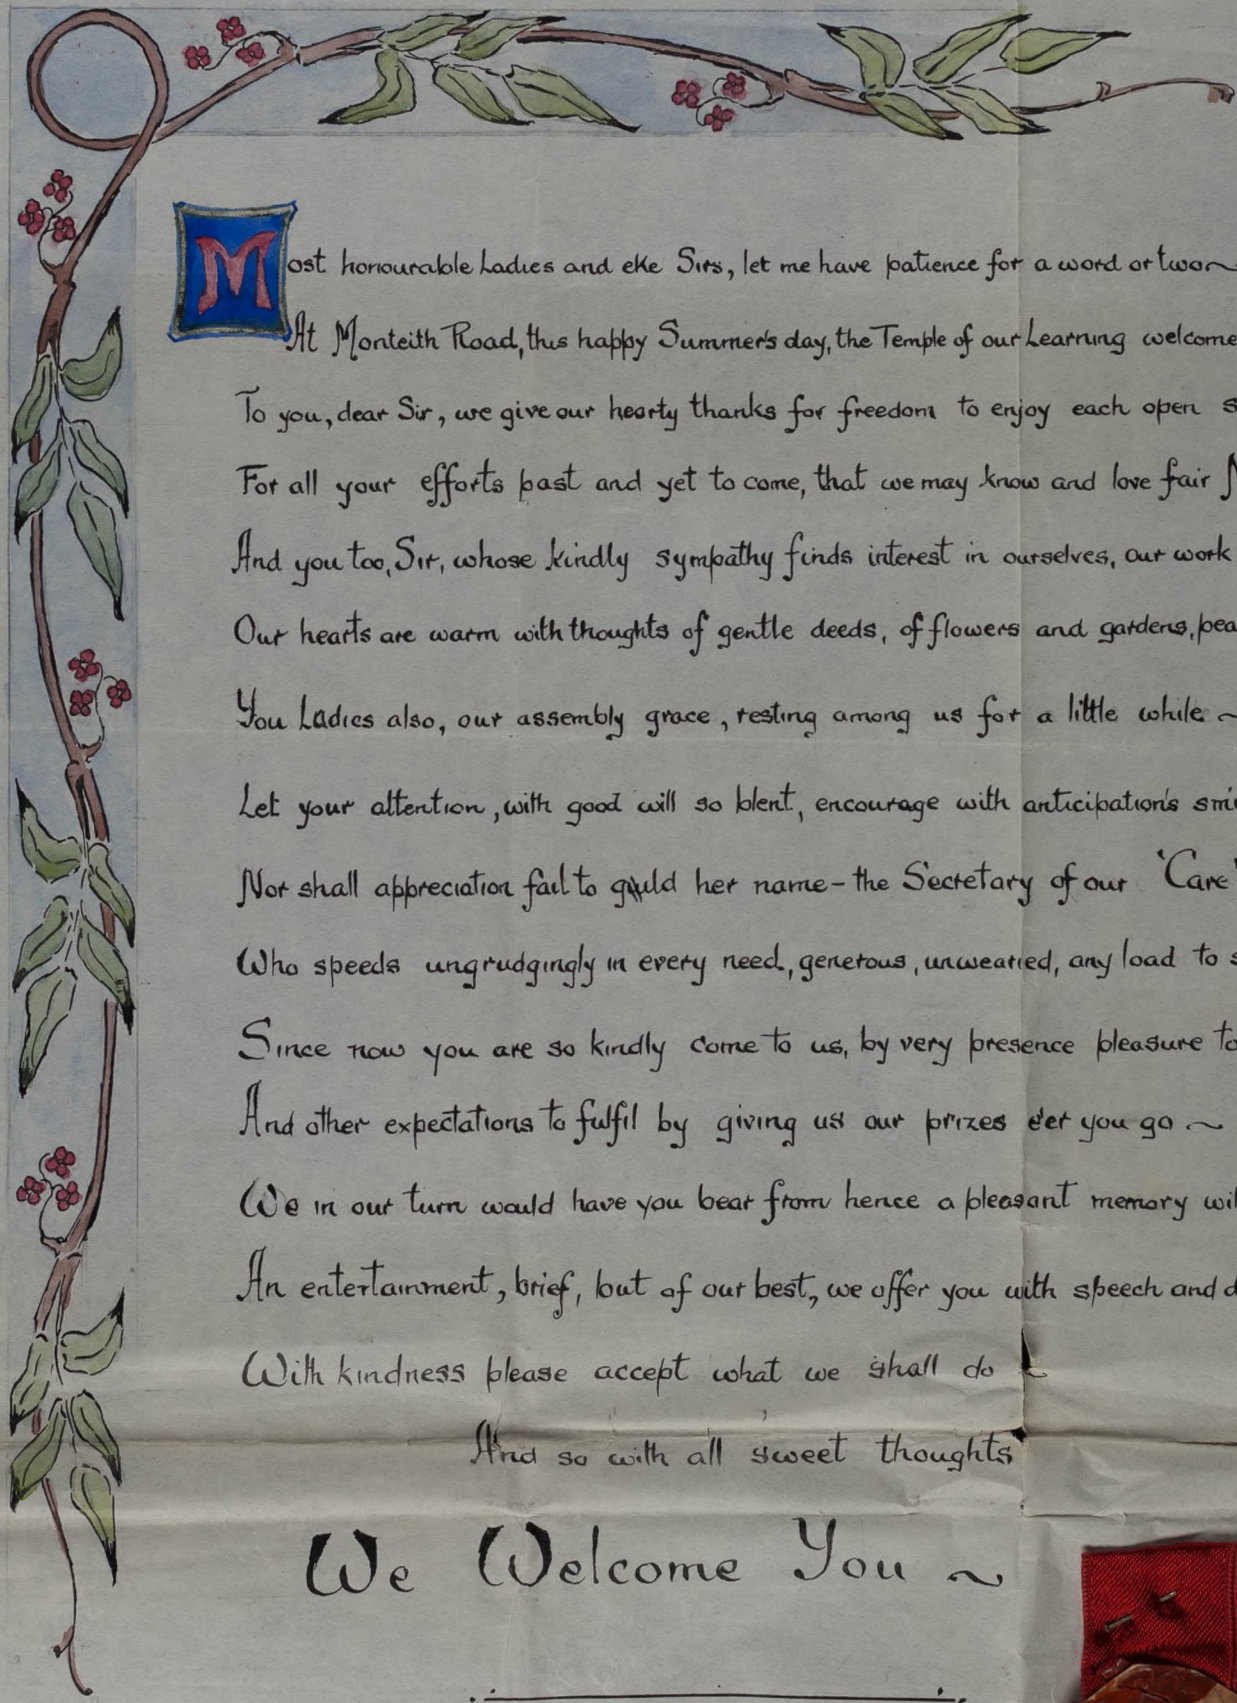 Most honourable Ladies and eke Sirs, let me have patience for a word or two~
At Monteith Road, this happy Summer's day, the Temple of our Learning welcome
To you, dear Sir, we give our hearty thanks for freedom to enjoy each open s
For all your efforts past and yet to come, that we may know and love fair N
And you too, Sir, whose kindly sympathy finds interest in ourselves, our work
Our hearts are warm with thoughts of gentle deeds, of flowers and gardens, pea
You Ladies also, our assembly grace, resting among us for a little while ~
Let your attention, with good will so blent, encourage with anticipation's smi
Nor shall appreciation fail to guild her name - the Secretary of our 'Care'
Who speeds ungrudgingly in every need, generous, unwearied, any load to s
Since now you are so kindly come to us, by very presence pleasure to
And other expectations to fulfil by giving us our prizes e'er you go ~
We in our turn would have you bear from hence a pleasant memory wi
An entertainment, brief, but of our best, we offer you with speech and d
With kindness please accept what we shall do ~
And so with all sweet thoughts
We Welcome You ~